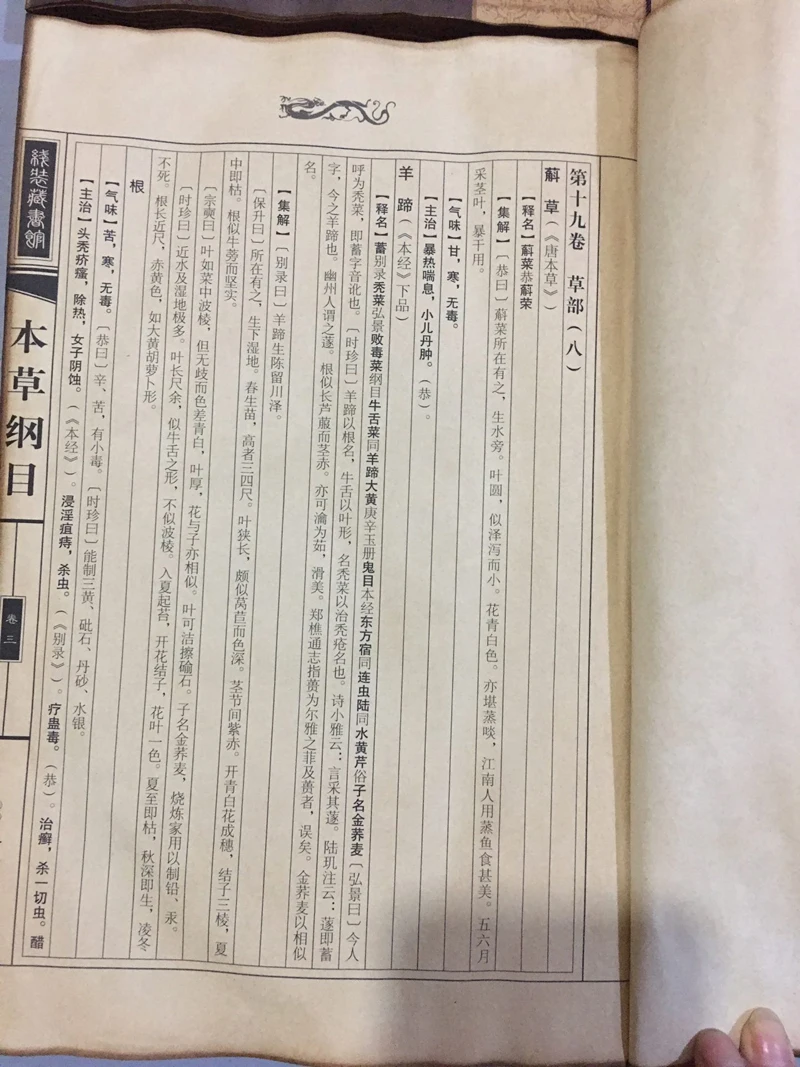 第十九卷 草部（八）
蔛草（《唐本草》）
【释名】蔛菜恭蔛荣
【集解】〔恭曰〕蔛菜所在有之，生水旁。叶圆，似泽泻而小。花青白色。亦堪蒸啖，江南人用蒸鱼食甚美。五六月
采茎叶，暴干用。
【气味】甘，寒，无毒。
【主治】暴热喘息，小儿丹肿。（恭）。
羊蹄（《本经》下品）
【释名】蓄别录秃菜弘景败毒菜纲目牛舌菜同羊蹄大黄庚辛玉册鬼目本经东方宿同连虫陆同水黄芹俗子名金荞麦〔弘景曰〕今人
呼为秃菜，即蓄字音讹也。〔时珍曰〕羊蹄以根名，牛舌以叶形，名秃菜以治秃疮名也。诗小雅云：言采其蓫。陆玑注云：蓫即蓄
字，今之羊蹄也。幽州人谓之蓫。根似长芦菔而茎赤。亦可瀹为茹，滑美。郑樵通志指蒉为尔雅之菲及蒉者，误矣。金荞麦以相似
名。
【集解】〔别录曰〕羊蹄生陈留川泽。
〔保升曰〕所在有之，生下湿地。春生苗，高者三四尺。叶狭长，颇似莴苣而色深。茎节间紫赤。开青白花成穗，结子三棱，夏
中即枯。根似牛蒡而坚实。
〔宗奭曰〕叶如菜中波棱，但无歧而色差青白，叶厚，花与子亦相似。叶可洁擦鍮石。子名金荞麦，烧炼家用以制铅、汞。
〔时珍曰〕近水及湿地极多。叶长尺余，似牛舌之形，不似波棱。入夏起苔，开花结子，花叶一色。夏至即枯，秋深即生，凌冬
不死。根长近尺，赤黄色，如大黄胡萝卜形。
根
【气味】苦，寒，无毒。〔恭曰〕辛、苦，有小毒。〔时珍曰〕能制三黄、砒石、丹砂、水银。
【主治】头秃疥瘙，除热，女子阴蚀。（《本经》）。浸淫疽痔，杀虫。（《别录》）。疗蛊毒。（恭）。治癣，杀一切虫。醋
线装藏书馆
本草纲目
卷三